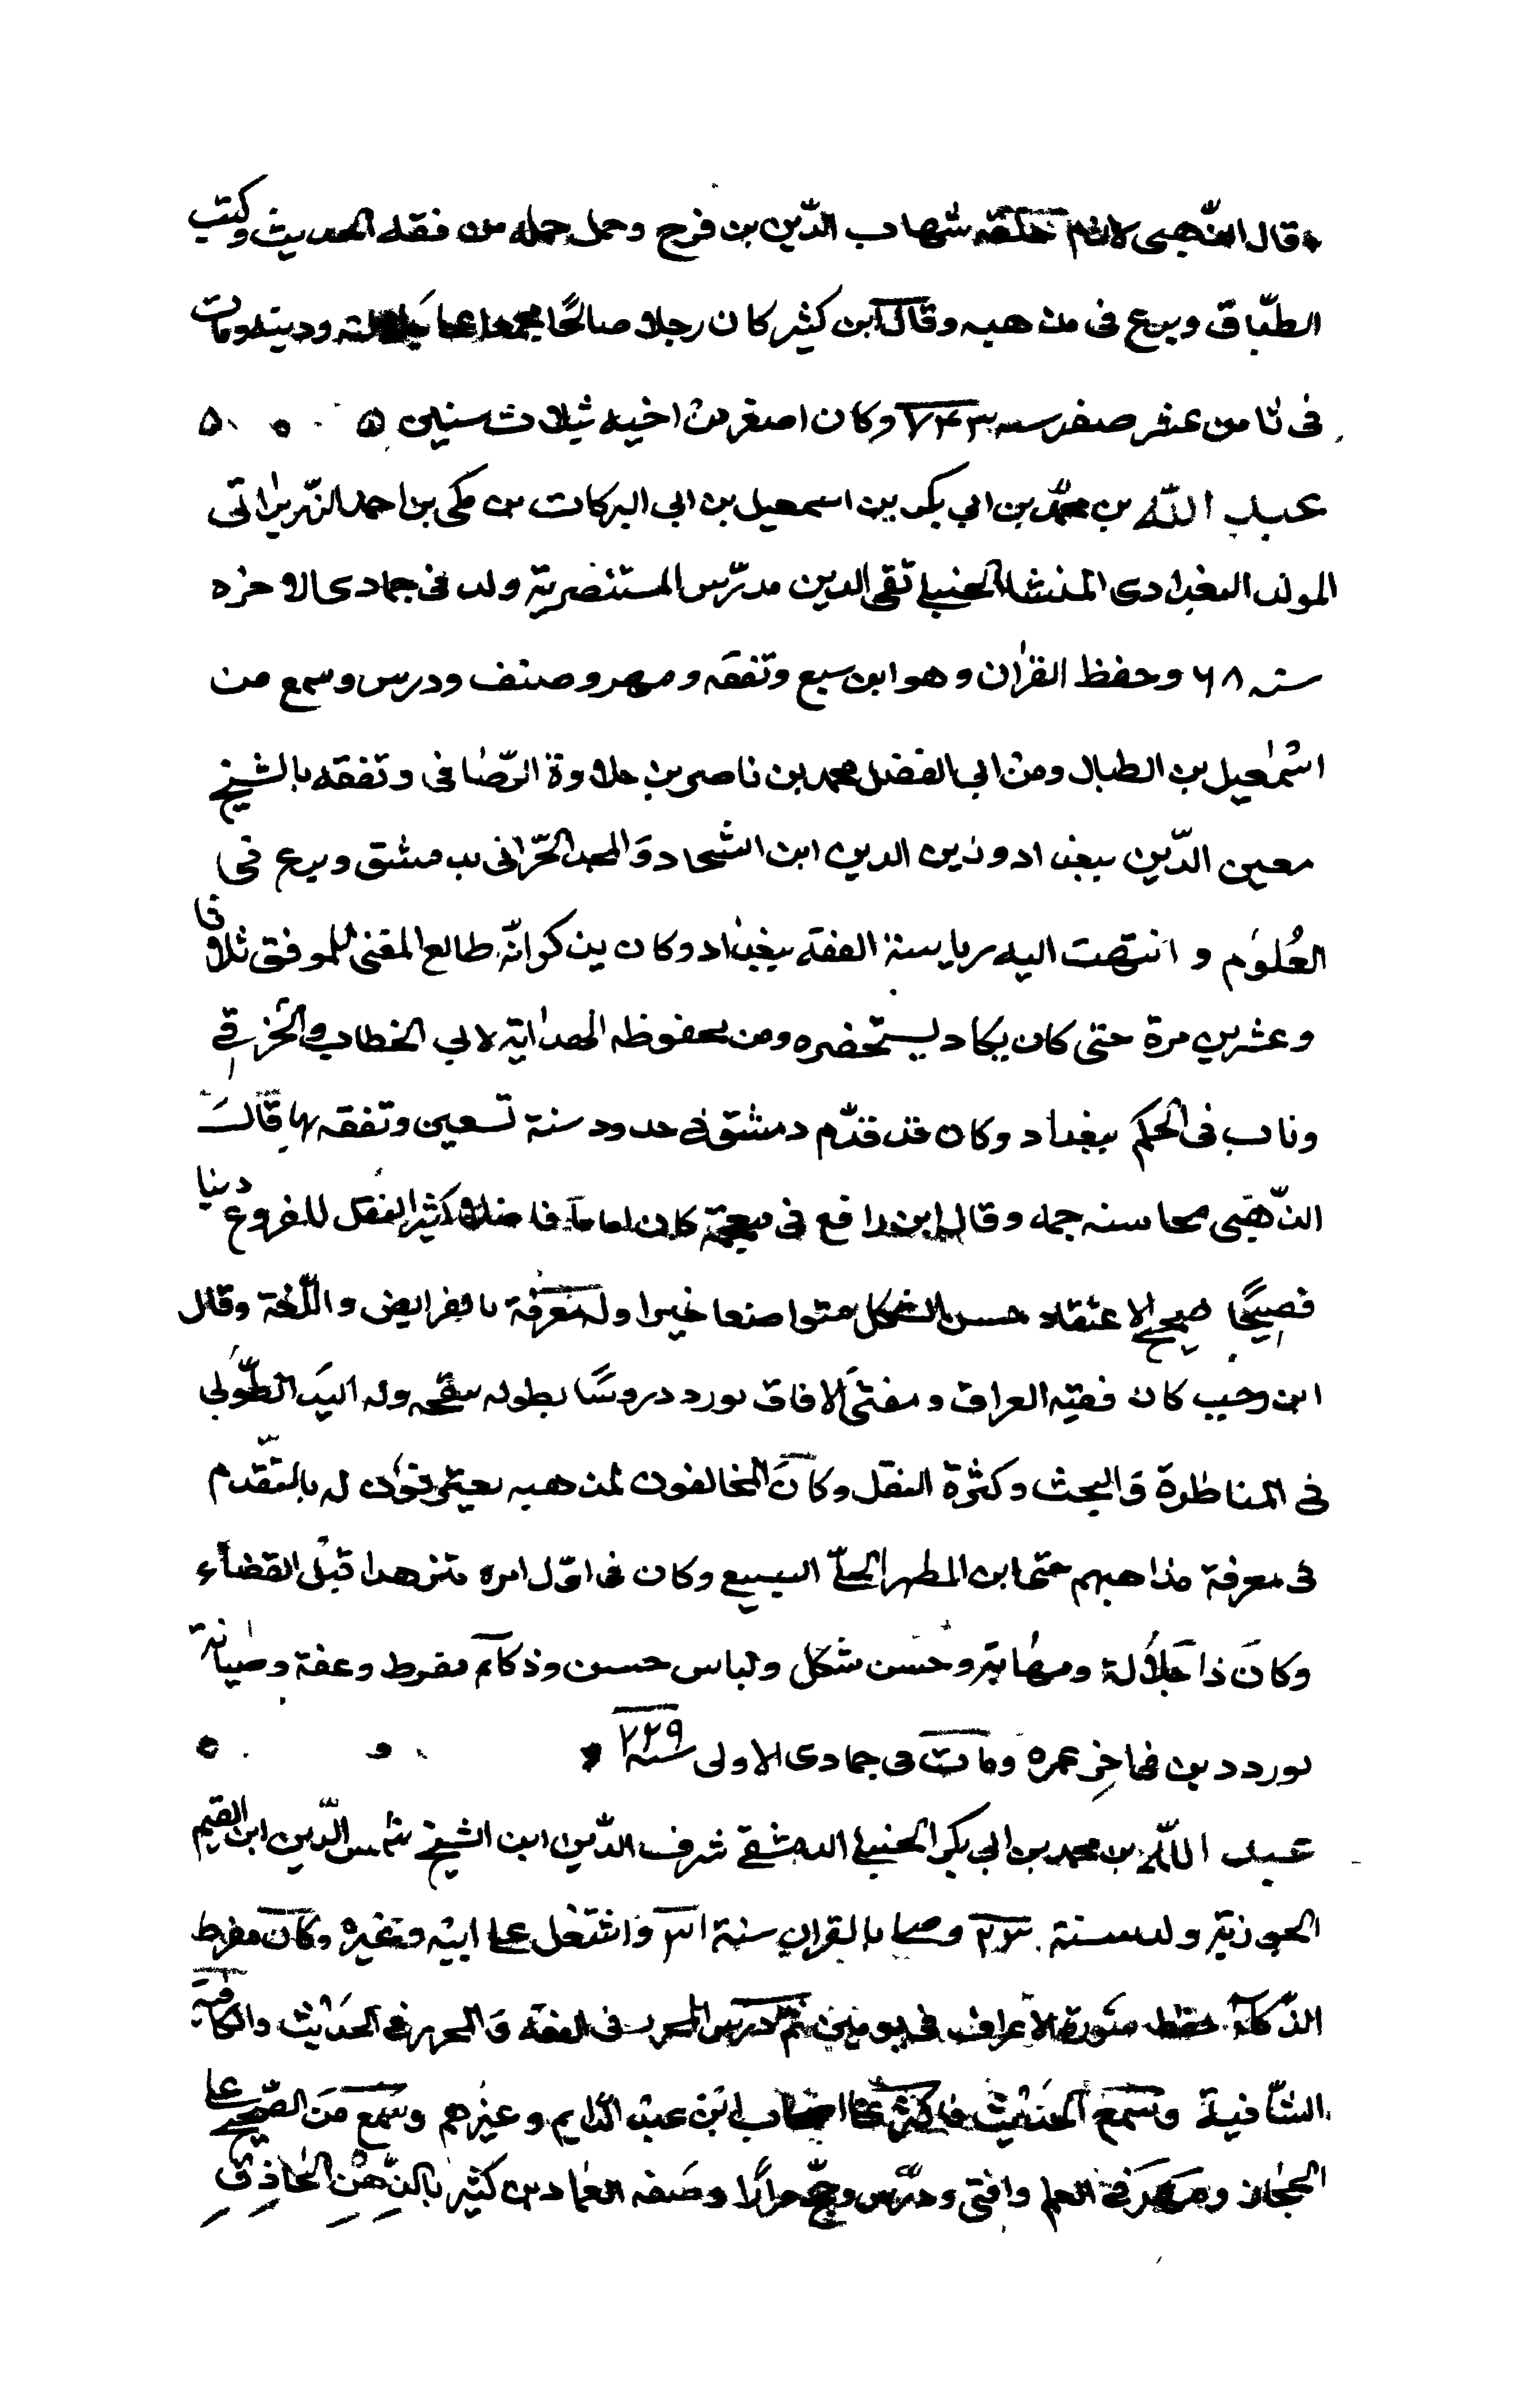 قال الذهبى لازم حلقة شهاب الدّين بن فرح وحمل جملة من فقه الحديث وكتب
الطّباق وبرع فى مذهبه وقال ابن كثير كان رجلا صالحًا مجمعا على ودينه ومات
فى ثامن عشر صفر سنه ٧٤٣ وكان اصغر من اخيه ثبلاث سنين
عبد اللّه بن محمّد بن ابي بكر بن اسمعيل بن ابي البركات بن مكى بن احمد الزّريراتى
المولد البغدادى المنشا الحنبلي تقى الدين مدرّس المستنصرية ولد فى جمادى الاخره
سنه ٦٨ وحفظ القرٰان وهو ابن سبع وتفقه ومهر وصنف ودرس وسمع من
اسمٰعيل بن الطبال ومن ابي الفضل محمد بن ناصر بن حلاوة الرّصافى وتفقه بالشيخ
معين الدّين ببغداد وزين الدين ابن الشحاد والمجد الحرّانى بدمشق وبرع فى
العُلوم و انتهت اليه رياسة الفقه ببغداد وكان يذكر انّه طالع المغنى للموفق ثلاثا
وعشرين مرة حتى كان يكاد يستحضره ومن محفوظه الهداية لابي الخطاب والخرقي
وناب فى الحكم ببغداد وكان قد قدّم دمشق في حدود سنة تسعين وتفقه بها قال
الذّهبى محاسنه جمه وقال ابن رافع فى معجمه كان اماما فاضلا كثير النقل للفروع دينا
فصيحًا صحيح الاعتقاد حسن الشكل متواضعا خيرا وله معرفة بالفرايض واللّغة وقال
ابن رجب كان فقيه العراق ومفتى الافاق يورد دروسًا مطوله وله اليد الطّولي
فى المناظرة والبحث وكثرة النقل وكان المخالفون لمذهبه يعترفون له بالتّقدم
فى معرفة مذاهبهم حتى ابن المطهر الحلّي الشيعي وكان فى اوّل امره متزهدا قبل القضاء
وكان ذا جلالة ومهابة وحسن شكل ولباس حسن وذكاء مفرط وعفة وصيانة
فى اخِر عمره ومات فى جمادى الاولى سنه ٧٢٩
عبد اللّه بن محمد بن ابي بكر الحنبلي الدمشقي شرف الدّين ابن الشيخ شمس الدّين ابن القيم
الجوزية ولد سنة ٢٣ وصلى بالقران سنة ٣١ واشتغل على ابيه وغيره وكان مفرط
الذكاء حفظ سورة الاعراف فى يومين ثم درس المحرر فى الفقه والمحرر في الحديث والكافية
الشّافية وسمع الحديث فاكثر على اصحاب ابن عبد الدايم وغيرهم وسمع من الصّحيح على
الحجار ومهر في العلم وافتى ودرّس وحجّ مرارًا وصفه العماد بن كثير بالذِّهْنِ الحاذِقِ